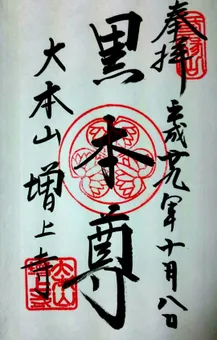 奉拝
平成廿九年十月八日
黒本尊
大本山 増上寺